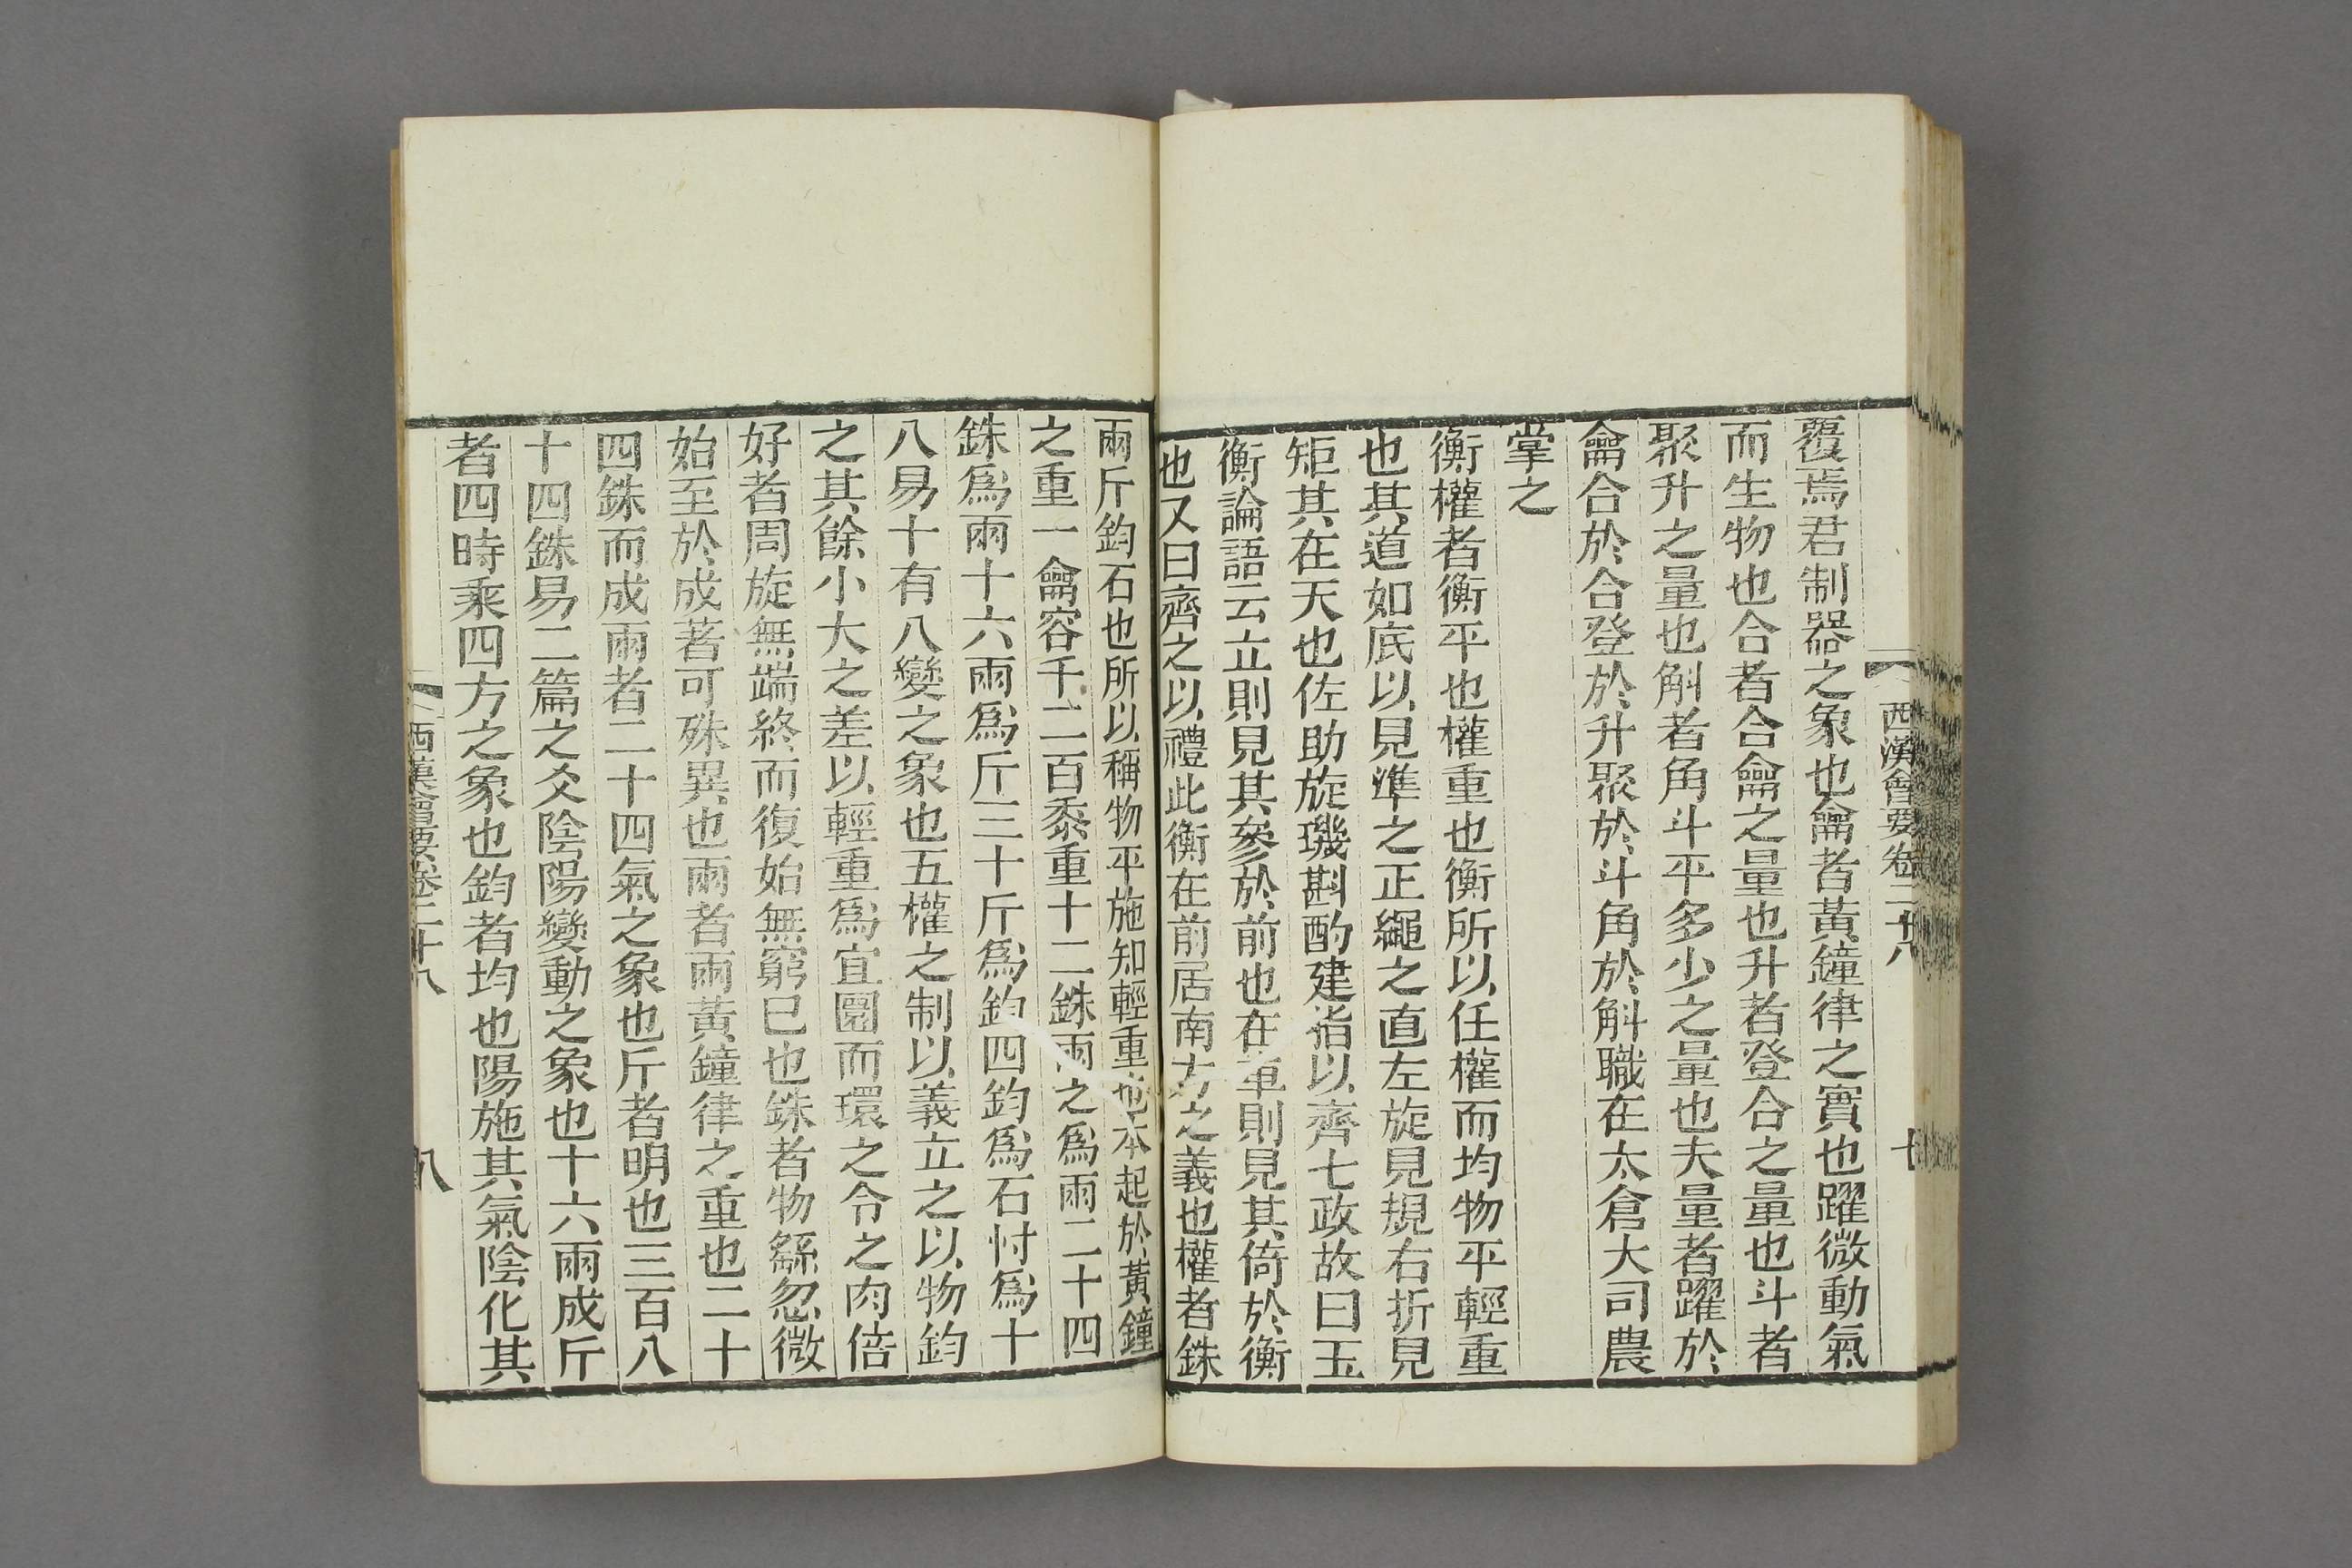 西漢會要卷二十八
七
覆焉君制器之象也龠者黃鐘律之實也躍微動氣
而生物也合者合龠之量也升者登合之量也斗者
聚升之量也斛者角斗平多少之量也夫量者躍於
龠合於合登於升聚於斗角於斛職在太倉大司農
掌之
衡權者衡平也權重也衡所以任權而均物平輕重
也其道如底以見準之正繩之直左旋見規右折見
矩其在天也佐助旋璣斟酌建指以齊七政故曰玉
衡論語云立則見其參於前也在車則見其倚於衡
也又曰齊之以禮此衡在前居南方之義也權者銖
兩斤鈞石也所以稱物平施知輕重也本起於黃鐘
之重一龠容千二百黍重十二銖兩之爲兩二十四
銖爲兩十六兩爲斤三十斤爲鈞四鈞爲石忖爲十
八易十有八變之象也五權之制以義立之以物鈞
之其餘小大之差以輕重爲宜圜而環之令之肉倍
好者周旋無端終而復始無窮已也銖者物繇忽微
始至於成著可殊異也兩者兩黃鐘律之重也二十
四銖而成兩者二十四氣之象也斤者明也三百八
十四銖易二篇之爻陰陽變動之象也十六兩成斤
者四時乘四方之象也鈞者均也陽施其氣陰化其
西漢會要卷二十八
八